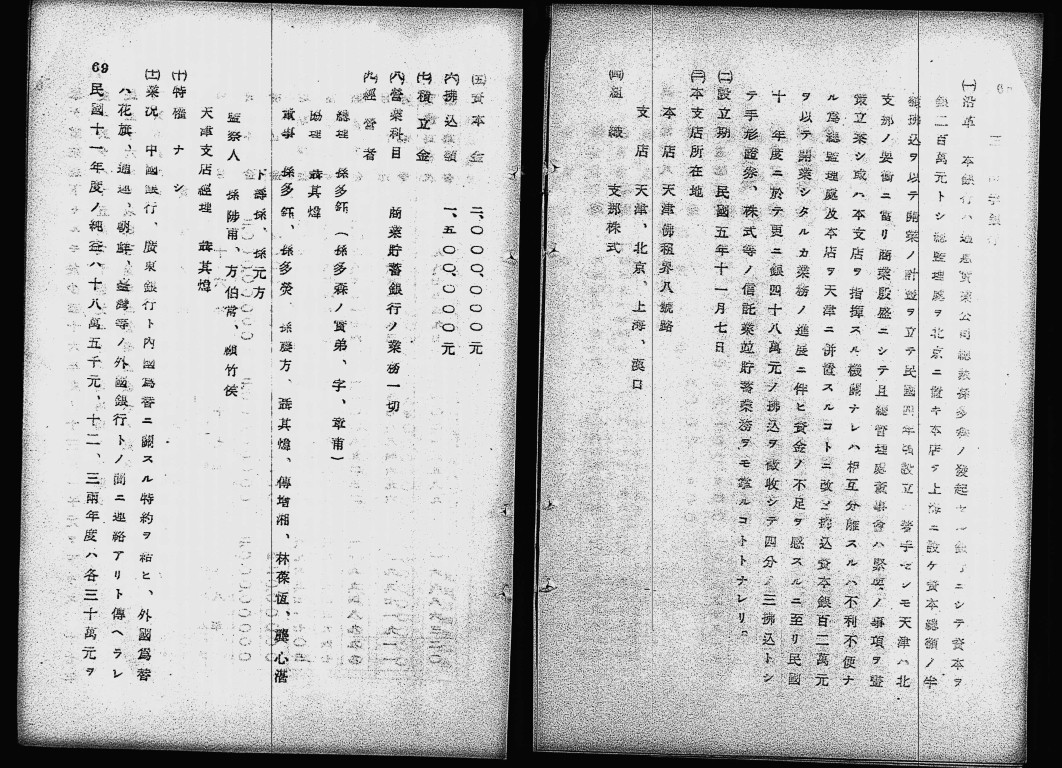 ㈠沿革 本銀行ハ通惠實業公司總裁孫多森ノ發起ケル銀行ニシテ資本ヲ
銀二百萬元トシ總監理處ヲ北京ニ置キ本店ヲ上海ニ設ケ資本總額ノ半
額拂込ヲ以テ開業ノ計畫ヲ立テ民國四年 設立 著手セシモ天津ハ北
支那ノ要衝ニ當リ商業殷盛ニシテ且總管理處董事會ハ緊要ノ事項ヲ
策立案シ或ハ本支店ヲ指揮スル機關ナレハ相互分離スルハ不利不便ナ
ル爲總監理處及本店ヲ天津ニ併置スルコトニ改メ拂込資本銀百二萬元
ヲ以テ開業シタルカ業務ノ進展ニ伴ヒ資金ノ不足ヲ感スルニ至リ民國
十一年度ニ於テ更ニ銀四十八萬元ノ拂込ヲ徵收シテ四分ノ三拂込トシ
テ手形證券、株式等ノ信託業竝貯蓄業務ヲモ營ルコトトナレリ。
㈡設立期 民國五年十一月七日
㈢本支店所在地
本店 天津佛租界八號路
支店 天津、北京、上海、漢口
㈣組織 支那株式
㈤資本金 二、〇〇〇、〇〇〇元
㈥拂込額 一、五〇〇、〇〇〇元
㈦積立金
㈧營業科目 商業貯蓄銀行ノ業務一切
㈨經營者
總理 孫多鈺(孫多森ノ實弟、字、章甫)
協理 聶其煒
董事 孫多鈺、孫多熒、孫震方、聶其煒、傅增湘、林葆恆、龔心湛
卞蔭孫、孫元方
監察人 孫陟甫、方伯常、顧竹侯
天津支店經理 聶其煒
㈩特權 ナシ
(十一)業況 中國銀行、廣東銀行ト內國爲替ニ關スル特約ヲ結ヒ、外國爲替
ハ花旗、通運、朝鮮、臺灣等ノ外國銀行トノ間ニ連絡アリト傳ヘラレ
民國十一年度ノ純益ハ十八萬五千元、十二、三兩年度ハ各三十萬元ヲ
69